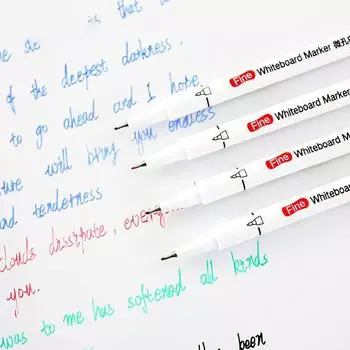 is that
of the deepest darkness.
to go ahead and I hope
ture will bring you endless
and tenderness
clouds dissipate,
you.
was to me has softened all kinds
been
Fine Whiteboard Marker
Fine Whiteboard Marker
Fine Whiteboard Mark
Fine Whiteboar